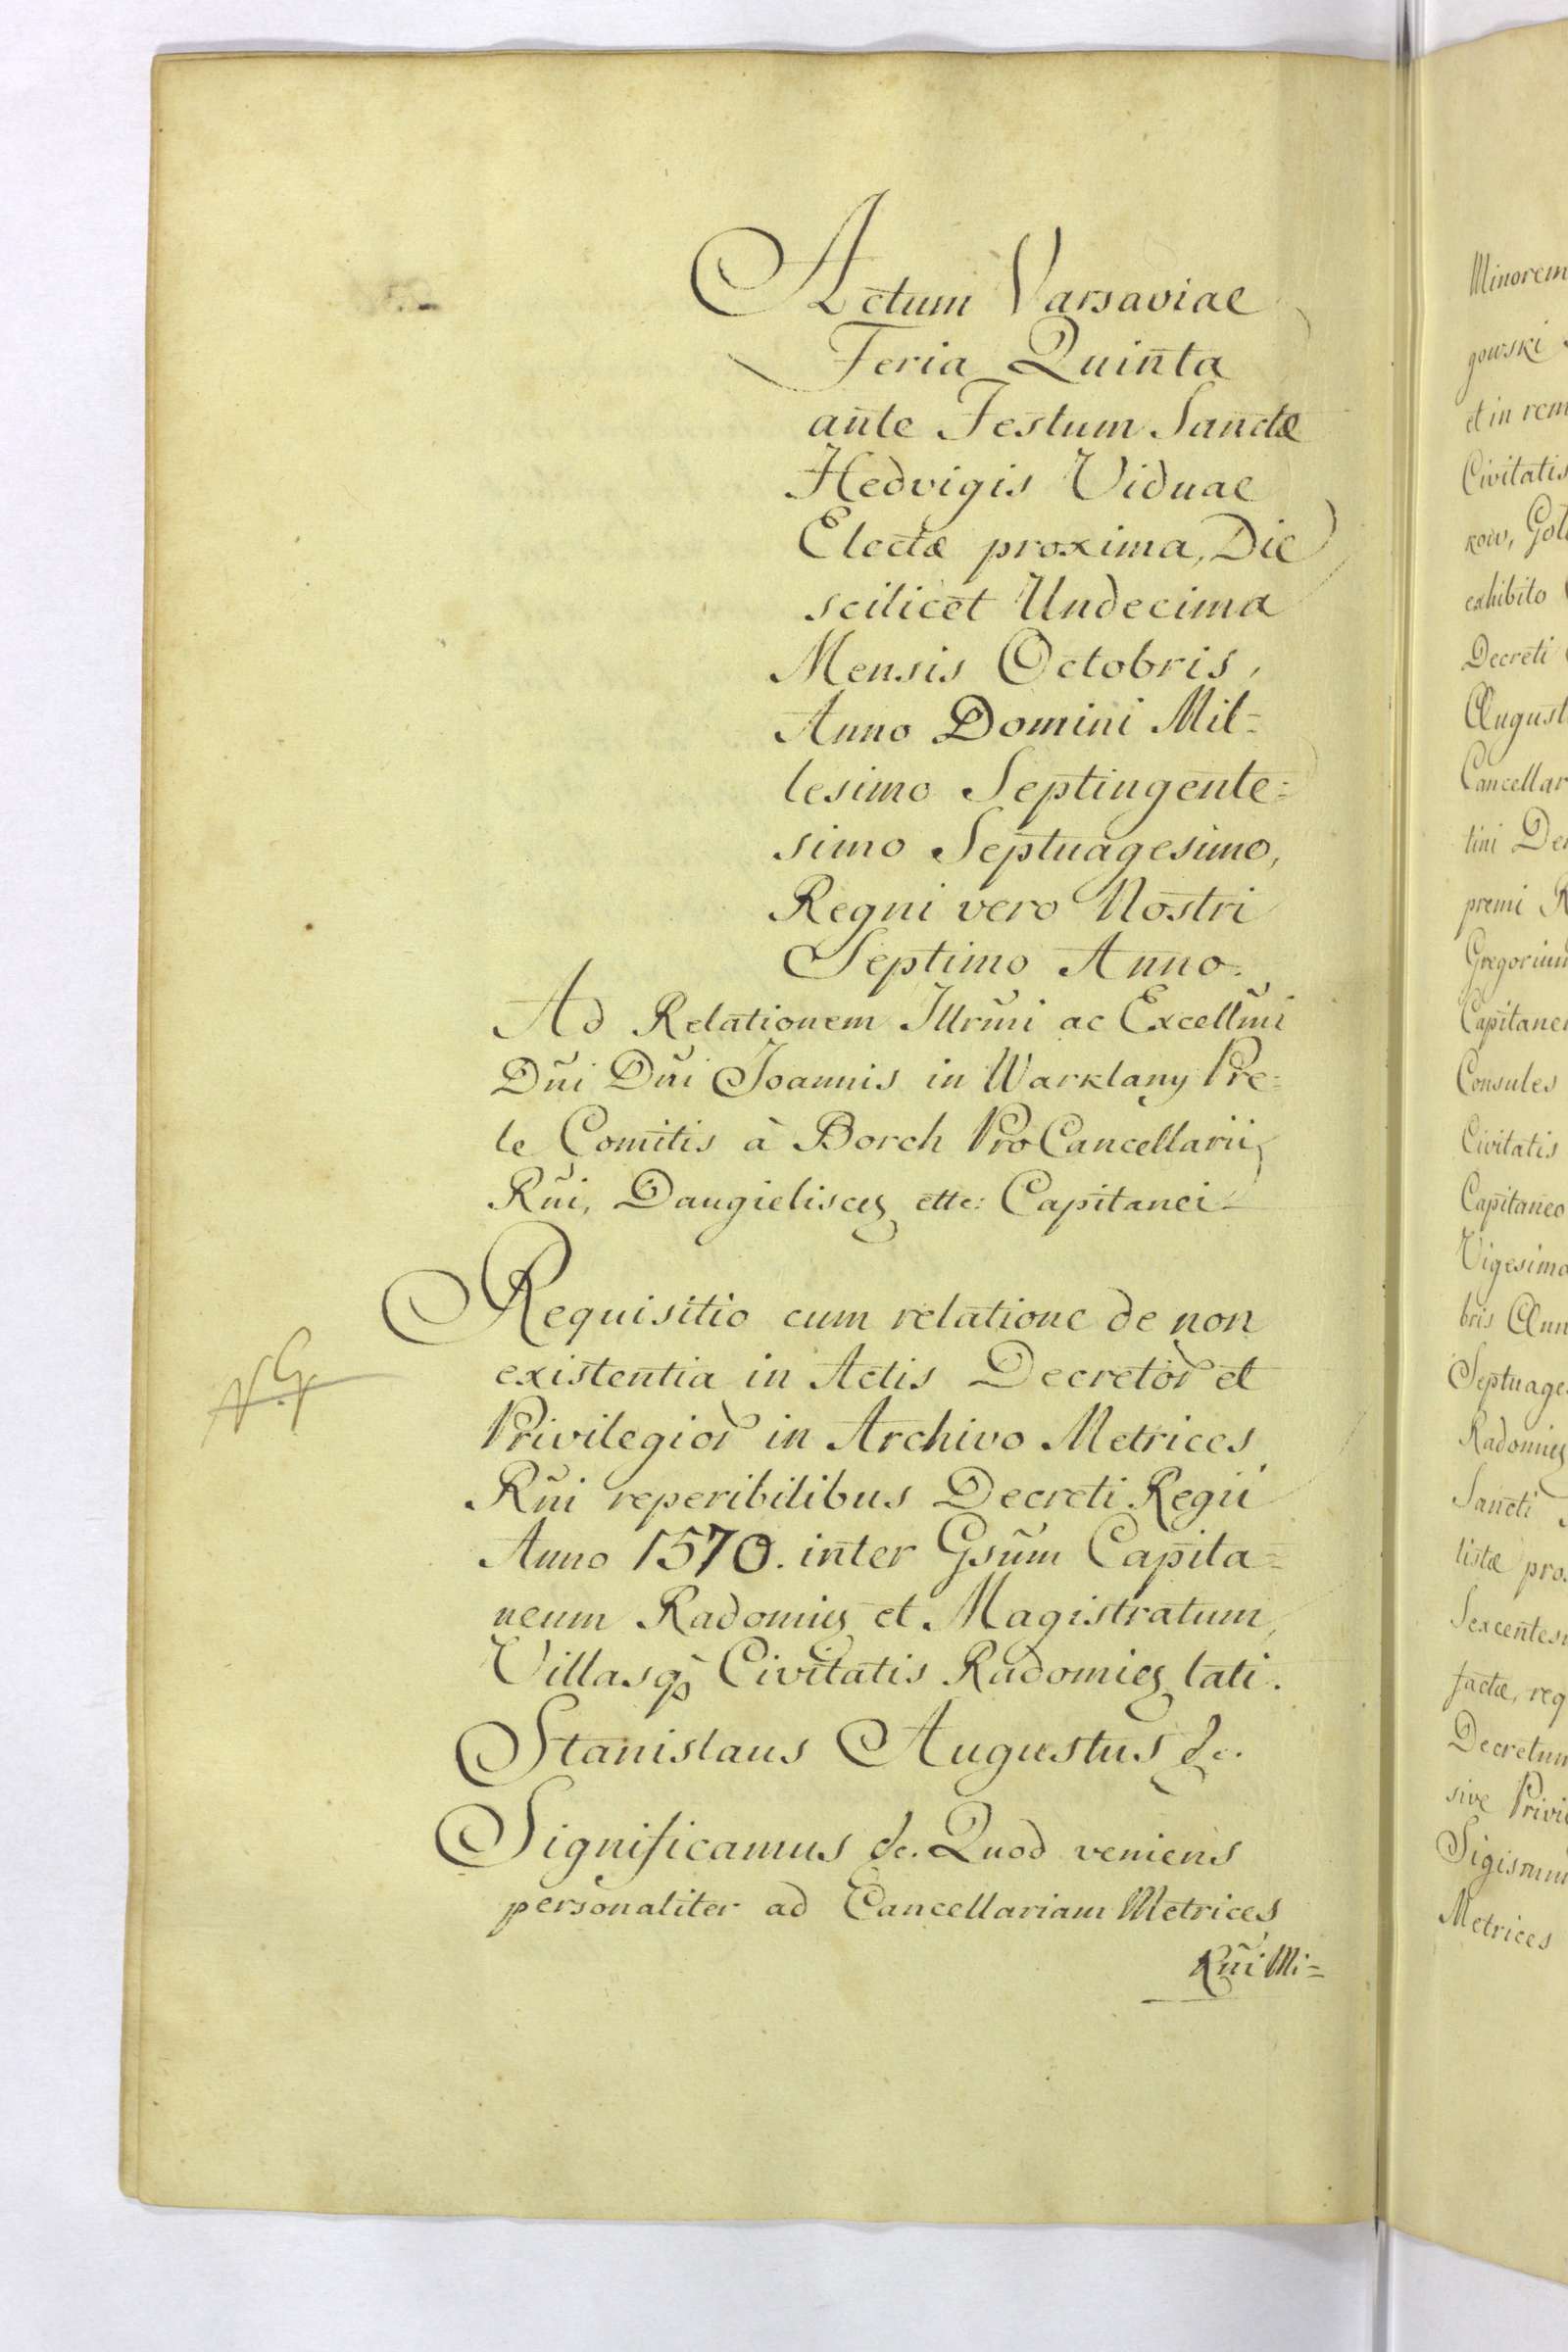 Actum Varsaviae
Feria Quinta
ante Festum Sanctæ
Hedvigis Viduae
Electæ proxima, Die
scilicet Undecima
Mensis Octobris,
Anno Domini Mil=
lesimo Septingente=
simo Septuagesimo,
Regni vero Nostri
Septimo Anno.
Ad Relationem Illrm̃i ac Excellm̃i
Dñi Dñi Joannis in Warklany Pre=
le Comitis à Borch ProCancellarii
Rñi, Daugielisceȝ ettc: Capitanei
Requisitio cum relatione de non
existentia in Actis Decretor̃ et
Privilegior̃ in Archivo Metrices
Rñi reperibilibus Decreti Regii
Anno 1570. inter Gsũm Capita=
neum Radomieȝ et Magistratum,
Villasqȝ Civitatis Radomieȝ lati.
Stanislaus Augustus &c.
Significamus &c. Quod veniens
personaliter ad Cancellariam Metrices
Rñi Mi=
Minorem
gowski
et in rem
Civitatis
kow, Goł
exhibito
Decreti
August
Cancellar
tini De
premi R
Gregorium
Capitane
Consules
Civitatis
Capitaneo
Vigesimo
bris Ann
Septuage
Radomieȝ
Sancti
listæ pro
Sexcentes
factæ, req
Decretum
sive Privi
Sigismun
Metrices